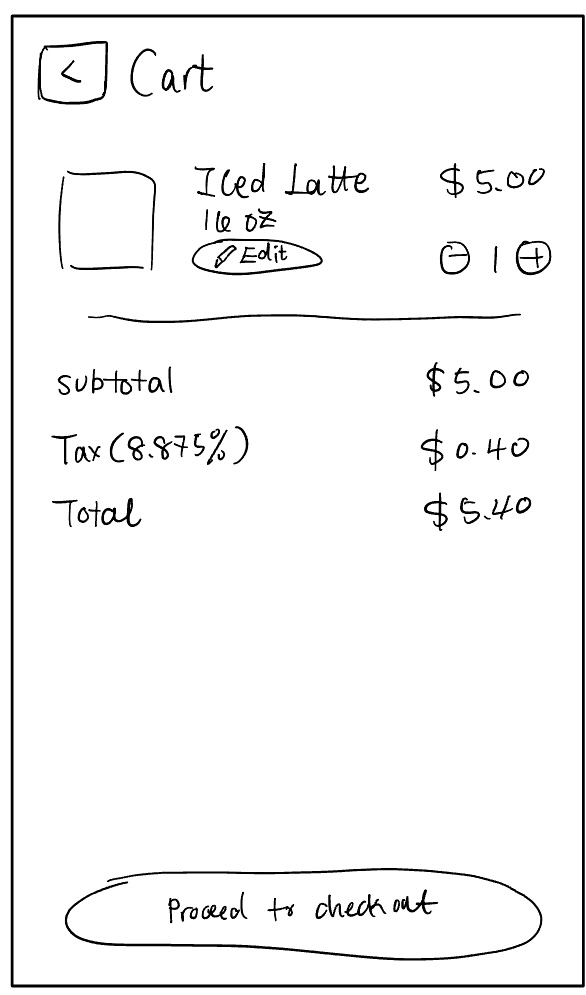 < Cart
Iced Latte $5.00
16 oz
Edit - 1 +
subtotal $5.00
Tax (8.875%) $0.40
Total $5.40
Proceed to check out